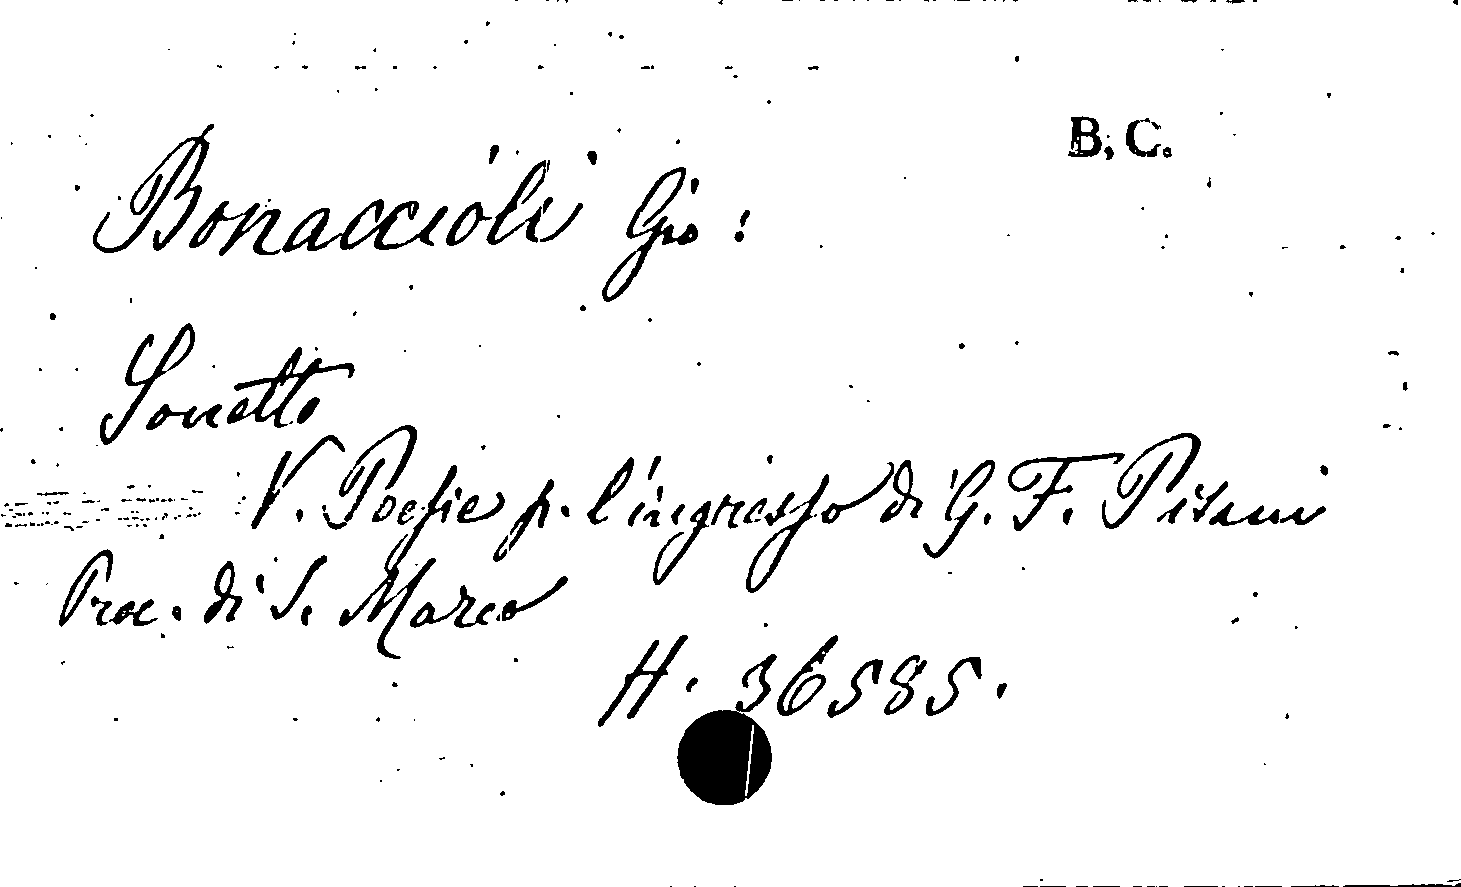 B. C.
Bonaccioli Gio:
Sonetto
V. Poesie p. l'ingresso di G. F. Pisani
Proc. di S. Marco
H. 36585.